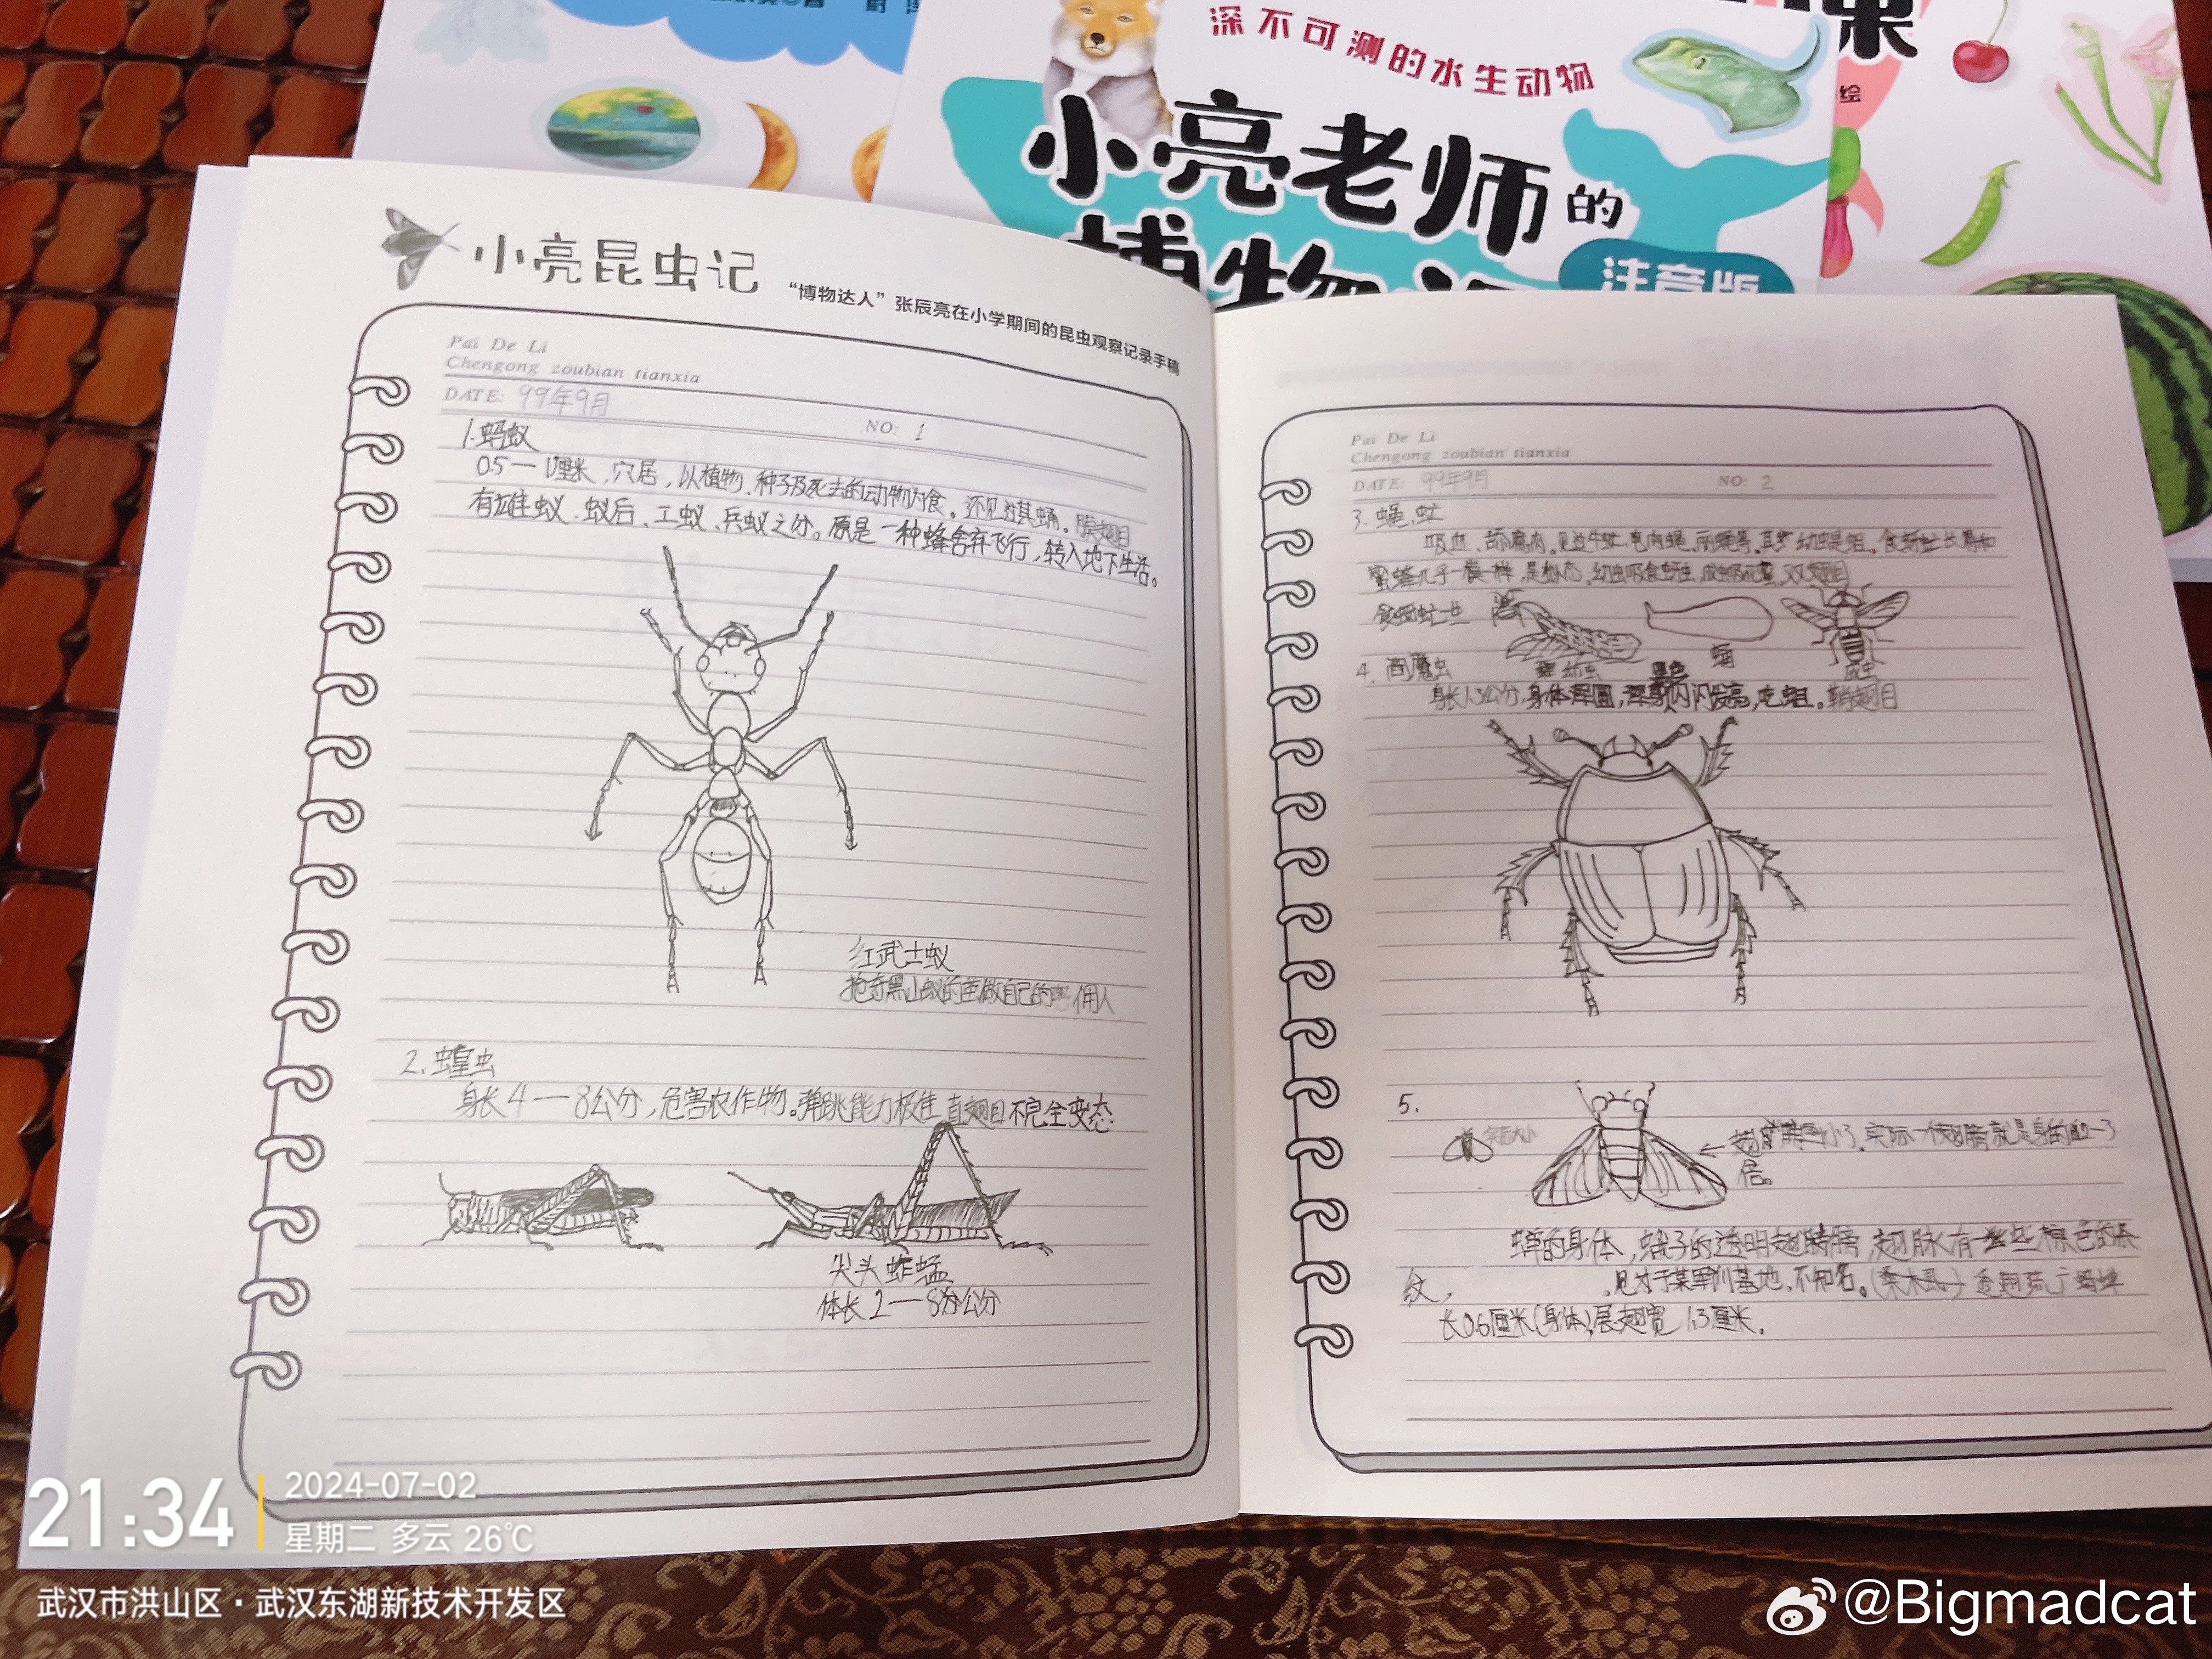 深不可测的水生动物
小亮老师的
博物课
注音版
课
绘
小亮昆虫记
“博物达人”张辰亮在小学期间的昆虫观察记录手稿
Pai De Li
Chengong zoubian tianxia
DATE: 99年9月
NO: 1
1.蚂蚁
0.5—1厘米,穴居,以植物、种子及死去的动物为食。还见过其蛹。膜翅目
有雄蚁、蚁后、工蚁、兵蚁之分。原是一种蜂舍弃飞行,转入地下生活。
红武士蚁
抢夺黑山蚁的茧做自己的佣人
2.蝗虫
身长4—8公分,危害农作物。弹跳能力极佳 直翅目不完全变态
尖头蚱蜢
体长2—8公分
Pai De Li
Chengong zoubian tianxia
DATE: 99年9月
NO: 2
3.蝇、虻
吸血、舔腐肉。见过牛虻、麻蝇、丽蝇等。其幼虫是蛆。食蚜虻长得和
蜜蜂几乎一模一样,是拟态,幼虫吸食蚜虫,成虫吸花蜜,双翅目
食蚜虻一生
幼虫
蛹
成虫
4.阎魔虫
黑色
身长1.3公分,身体浑圆,浑身闪闪发亮,吃蛆。鞘翅目
5.
实际大小
←翅膀画小了,实际一侧翅膀就是身的2—3
倍。
蝉的身体,蛾子的透明翅膀,翅脉有些棕色的条
纹,
见过于某军训基地,不知名。(桑木虱)透翅疏广蜡蝉
长0.6厘米(身体),展翅宽1.3厘米。
21:34
2024-07-02
星期二 多云 26℃
武汉市洪山区·武汉东湖新技术开发区
@Bigmadcat